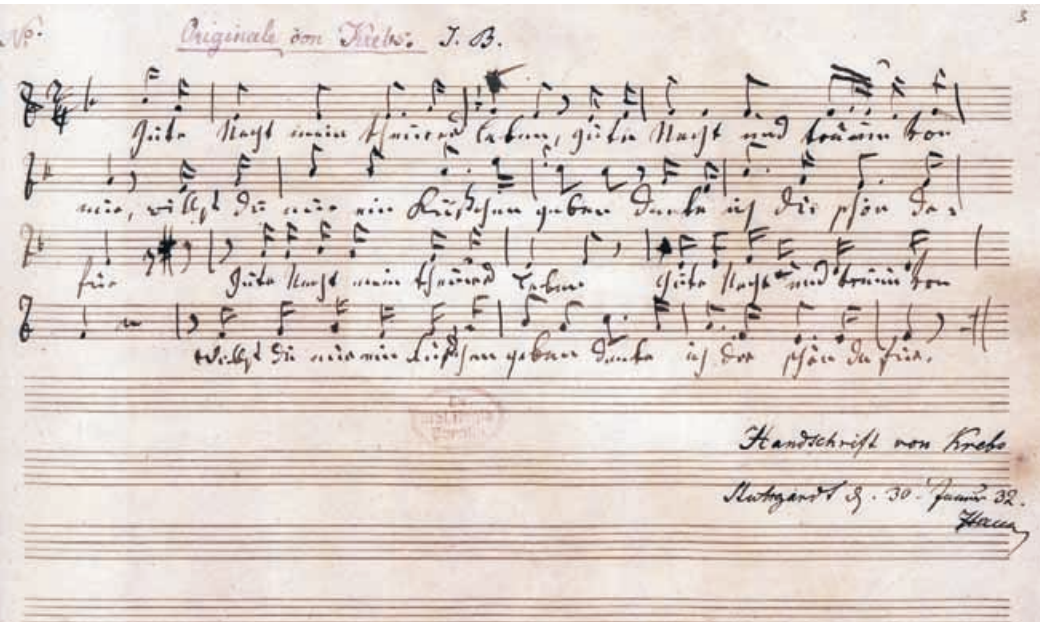 Nº.
Originale von Krebs. J. B.
3.
Gute Nacht mein theures Leben, gute Nacht und träum von
mir, willst du mir ein Küßchen geben danke ich dir schön da,
für Gute Nacht mein theures Leben Gute Nacht und träum von
willst du mir ein Küßchen geben danke ich dir schön da für.
Handschrift von Krebs
Stuttgardt d. 30. Januar 32.